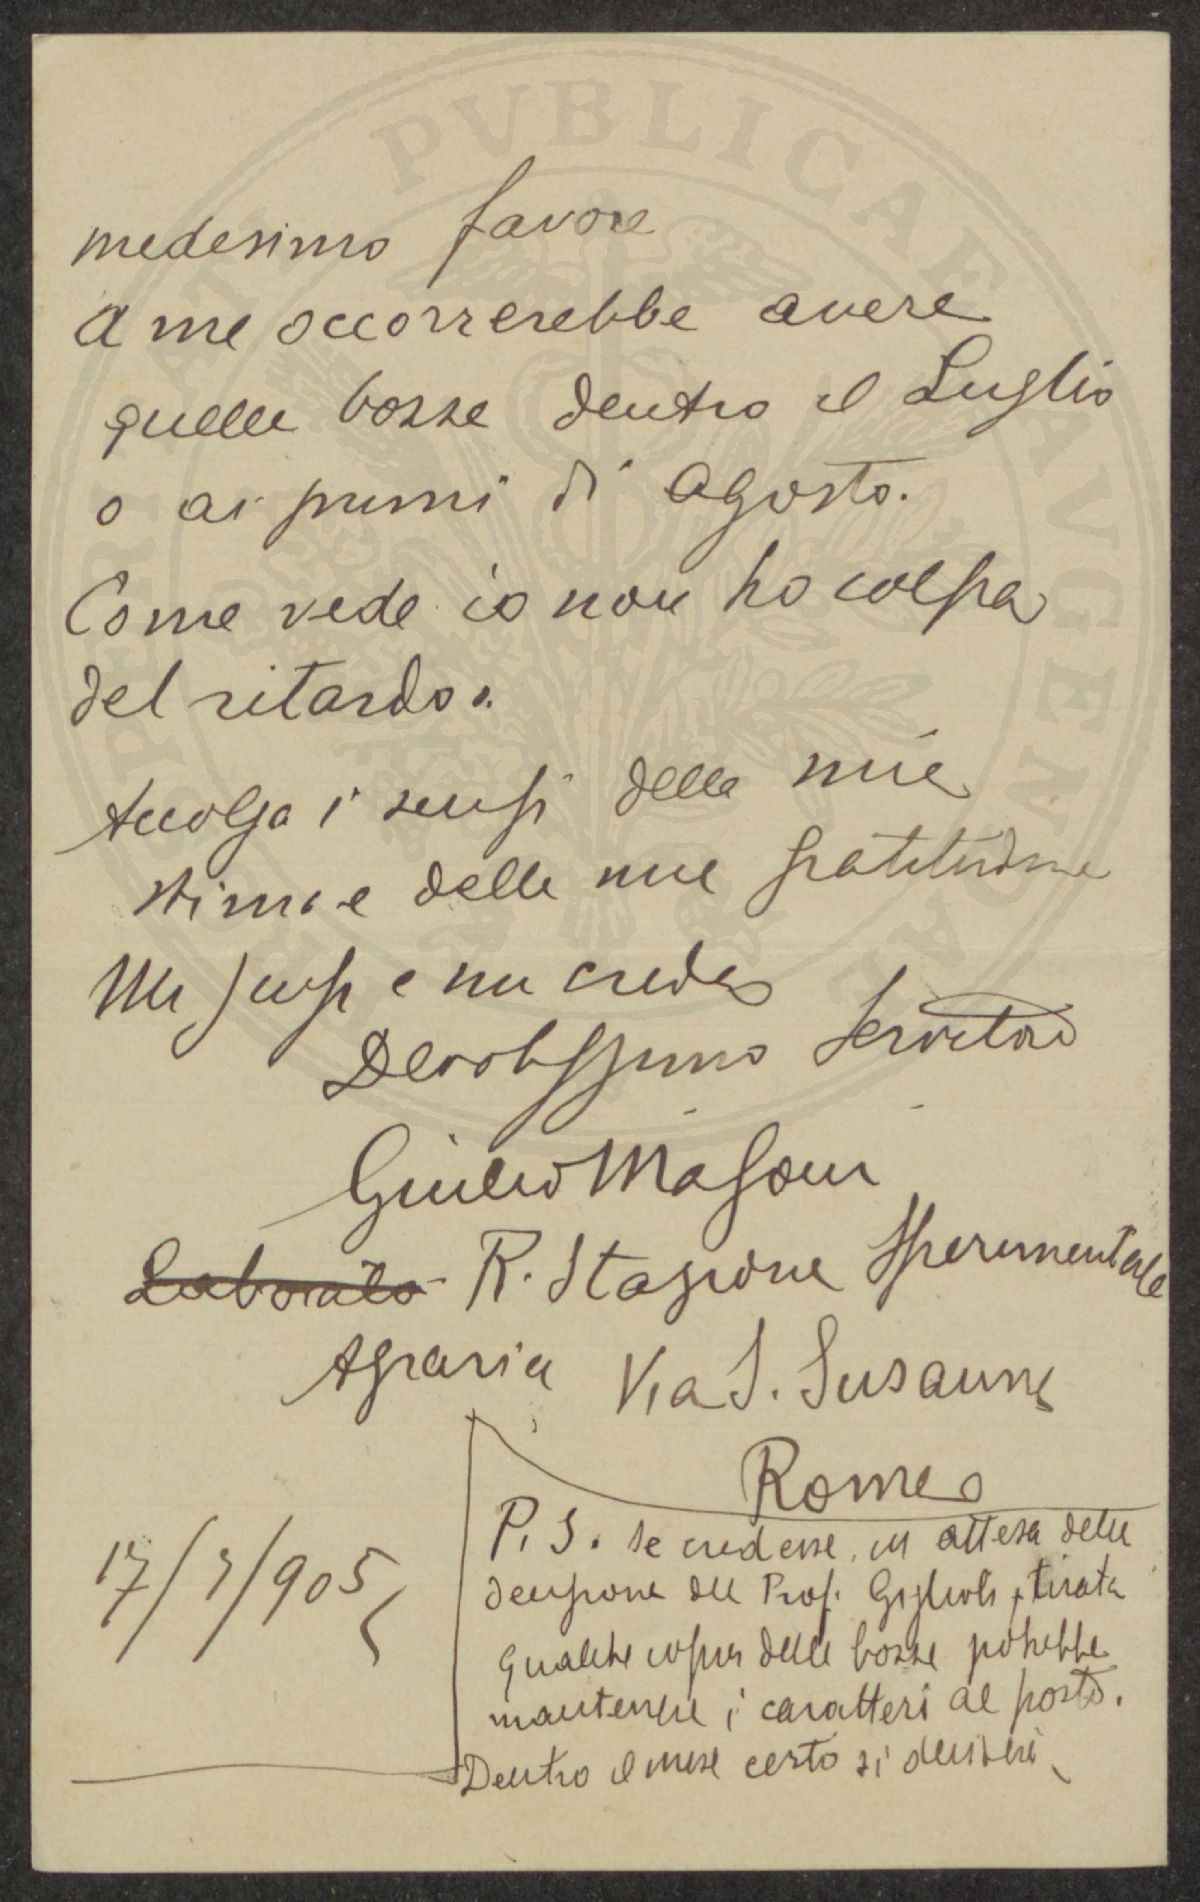 medesimo favore
A me occorrerebbe avere
quelle bozze dentro il Luglio
o ai primi di Agosto.
Come vede io non ho colpa
del ritardo.
Accolga i sensi della mia
stima e della mia gratitudine
Mi scusi e mi creda
Devotissimo Servitore
Giulio Masoni
Laborato R. Stazione Sperimentale
Agraria Via S. Susanna
Roma
17/7/905
P. S. Se credesse, in attesa della
decisione del Prof. Giglioli, tirata
qualche copia delle bozze potrebbe
mantenere i caratteri al posto.
Dentro il mese certo si deciderà